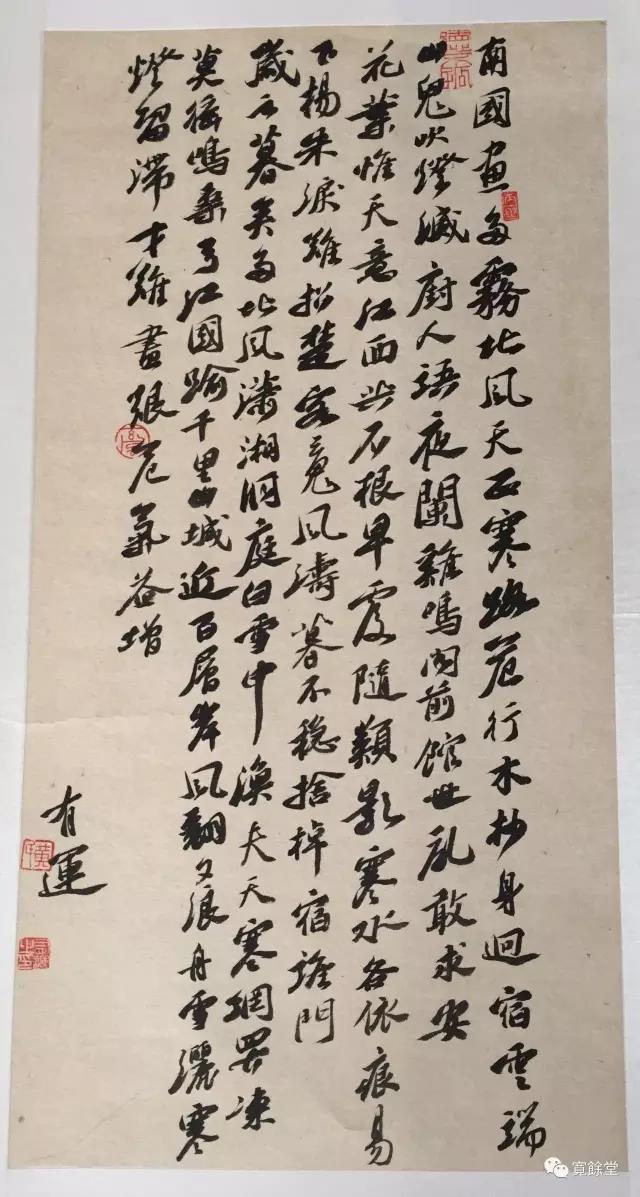 南國晝多霧北風天正寒路危行木杪身迥宿雲端
山鬼吹燈滅廚人語夜闌雞鳴問前館世亂敢求安
花葉惟天意江面共石根早霞隨類影寒水各依痕易
下楊朱淚難招楚客魂風濤暮不穩捨棹宿誰門
歲云暮矣多北風瀟湘洞庭白雪中漁夫天寒網罟凍
莫徭鳴桑弓江國踰千里山城近百層岸風翻夕浪舟雪灑寒
燈留滯才難盡艱危氣益增
有運
寬餘堂